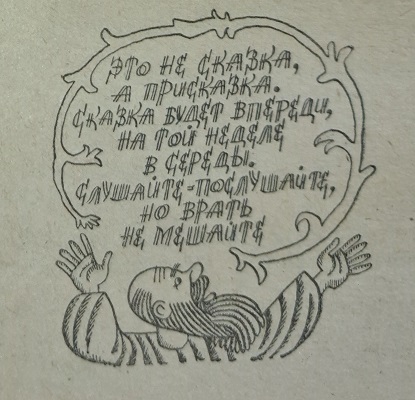 ЭТО НЕ СКАЗКА,
А ПРИСКАЗКА.
СКАЗКА БУДЕТ ВПЕРЕДИ,
НА ТОЙ НЕДЕЛЕ
В СЕРЕДЫ.
СЛУШАЙТЕ-ПОСЛУШАЙТЕ,
НО ВРАТЬ
НЕ МЕШАЙТЕ